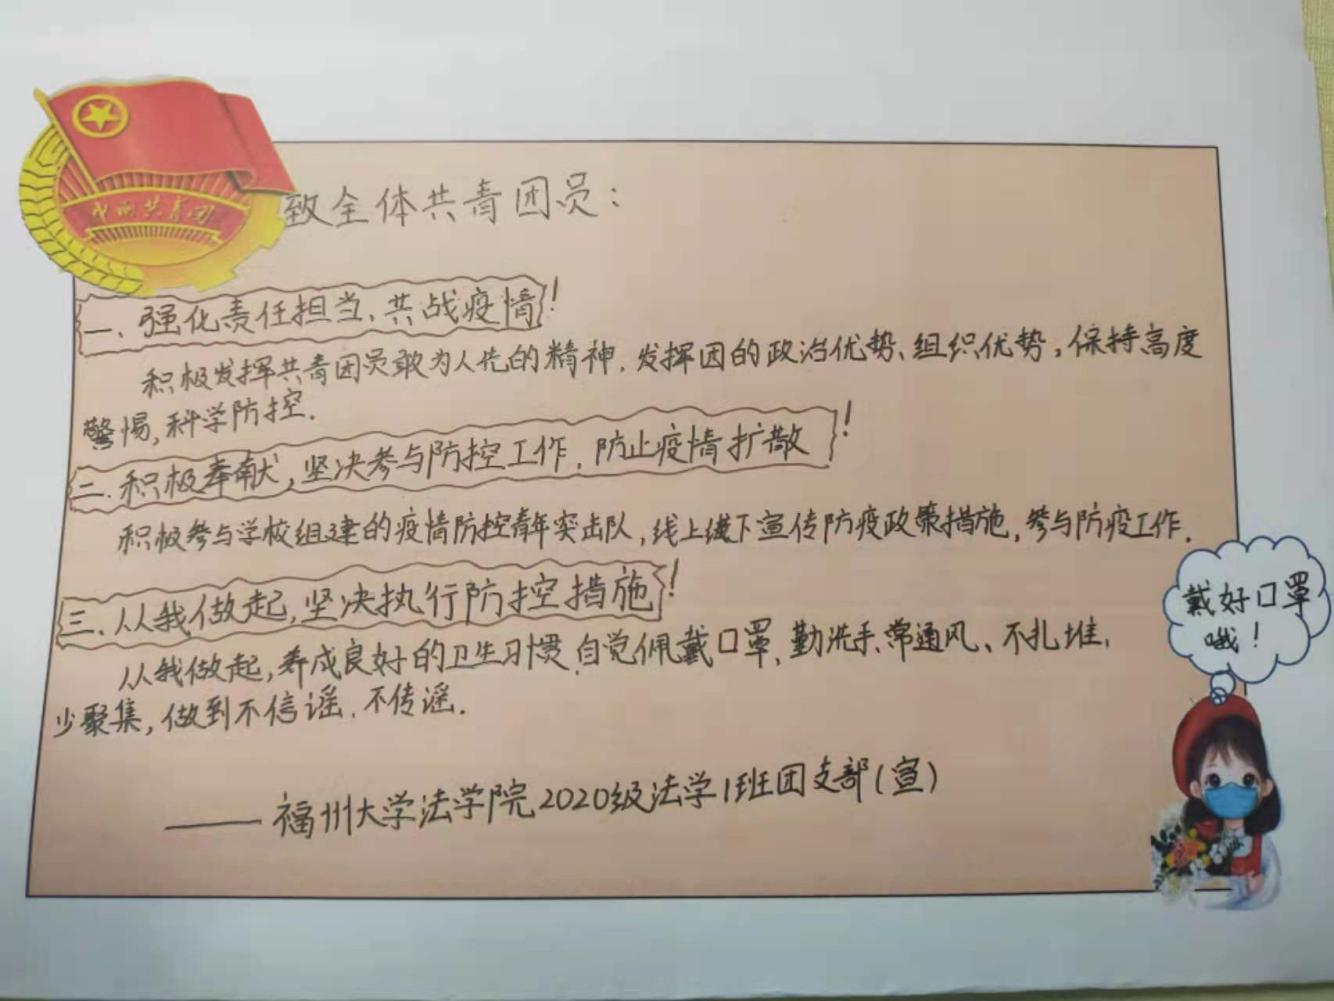 中国共青团
致全体共青团员：
一、强化责任担当、共战疫情！
积极发挥共青团员敢为人先的精神，发挥团的政治优势、组织优势，保持高度
警惕，科学防控．
二．积极奉献，坚决参与防控工作，防止疫情扩散！
积极参与学校组建的疫情防控青年突击队，线上线下宣传防疫政策措施，参与防疫工作．
三．从我做起，坚决执行防控措施！
从我做起，养成良好的卫生习惯，自觉佩戴口罩、勤洗手、常通风、不扎堆，
少聚集，做到不信谣．不传谣．
——福州大学法学院2020级法学1班团支部（宣）
戴好口罩
哦！